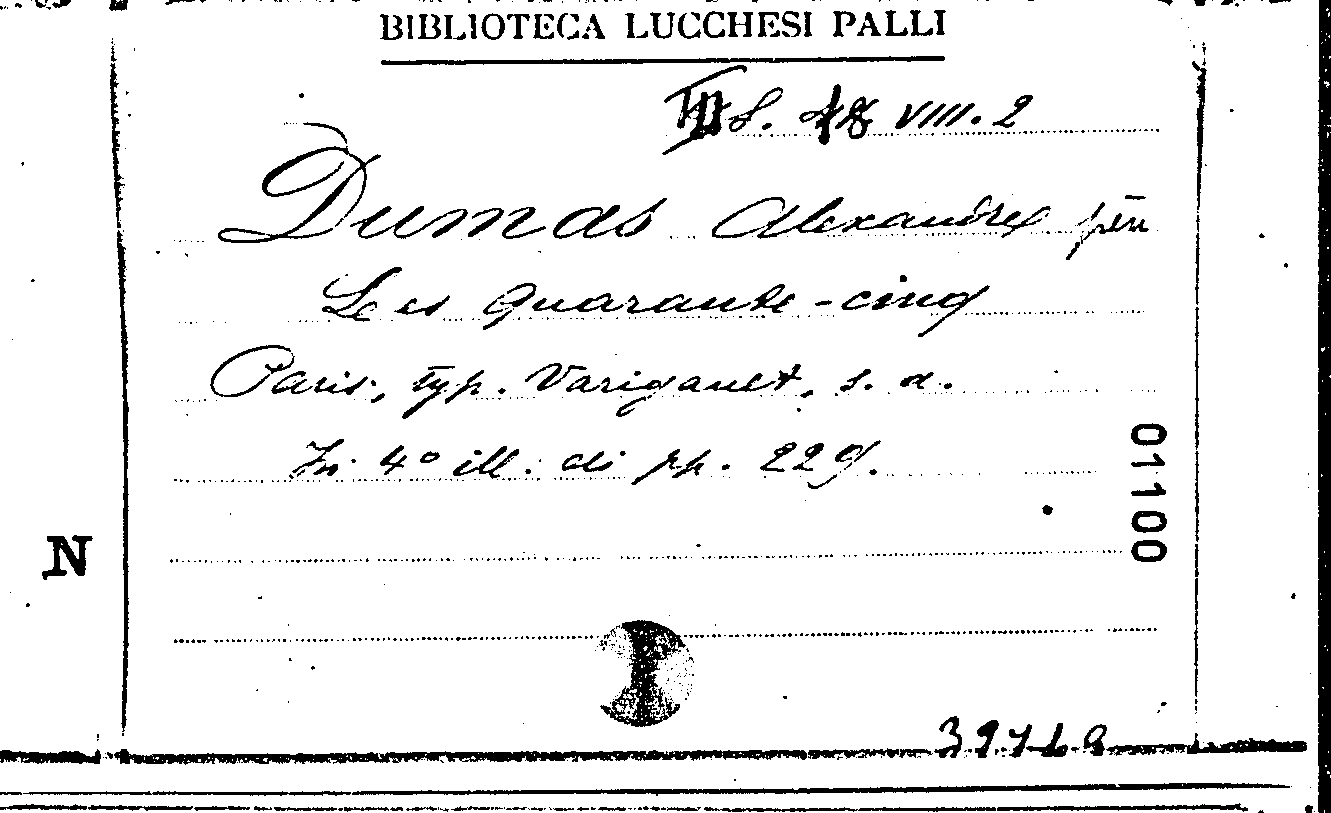 BIBLIOTECA LUCCHESI PALLI
VIII. 2
Dumas Alexandre père
Les Quarante-cinq
Paris, typ. Varigault, s. d.
In 4° ill. di pp. 229.
01100
N